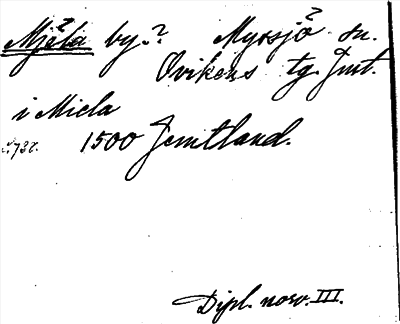 Mjåla by.? Myrsjö? sn.
Ovikens tg. Jmt.
i Miela
1500 Jemtland.
Dipl. norv. III.